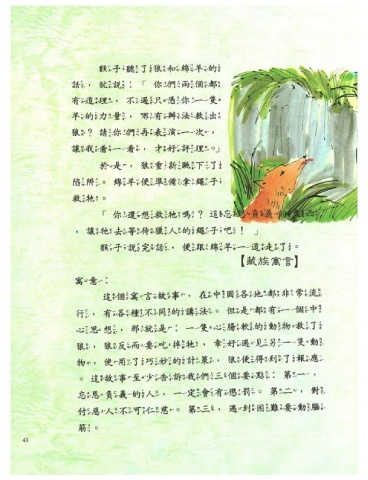 猴子聽了狼和綿羊的
話，就說：「你們兩個都
有道理，不過只憑你一隻
羊的力量，哪有辦法救出
狼？請你們再表演一次，
讓我看一看，才好評理。」
於是，狼重新跳下了
陷阱。綿羊便準備拿繩子
救牠。
「你還想救牠嗎？這忘恩負義的東西
，讓牠去等待獵人的繩子吧！」
猴子說完話，便跟綿羊一道走了。
【藏族寓言】
寓意：
這個寓言故事，在中國各地都非常流
行，有各種不同的講法。但是都有一個中
心思想，那就是：一隻心腸軟的動物救了
狼，狼反而要吃掉牠，幸好遇見另一隻動
物，使用了巧妙的計策，狼便得到了報應
。這故事至少告訴我們三個要點：第一，
忘恩負義的人，一定會有懲罰。第二，對
付惡人不可仁慈。第三，遇到困難要動腦
筋。
45